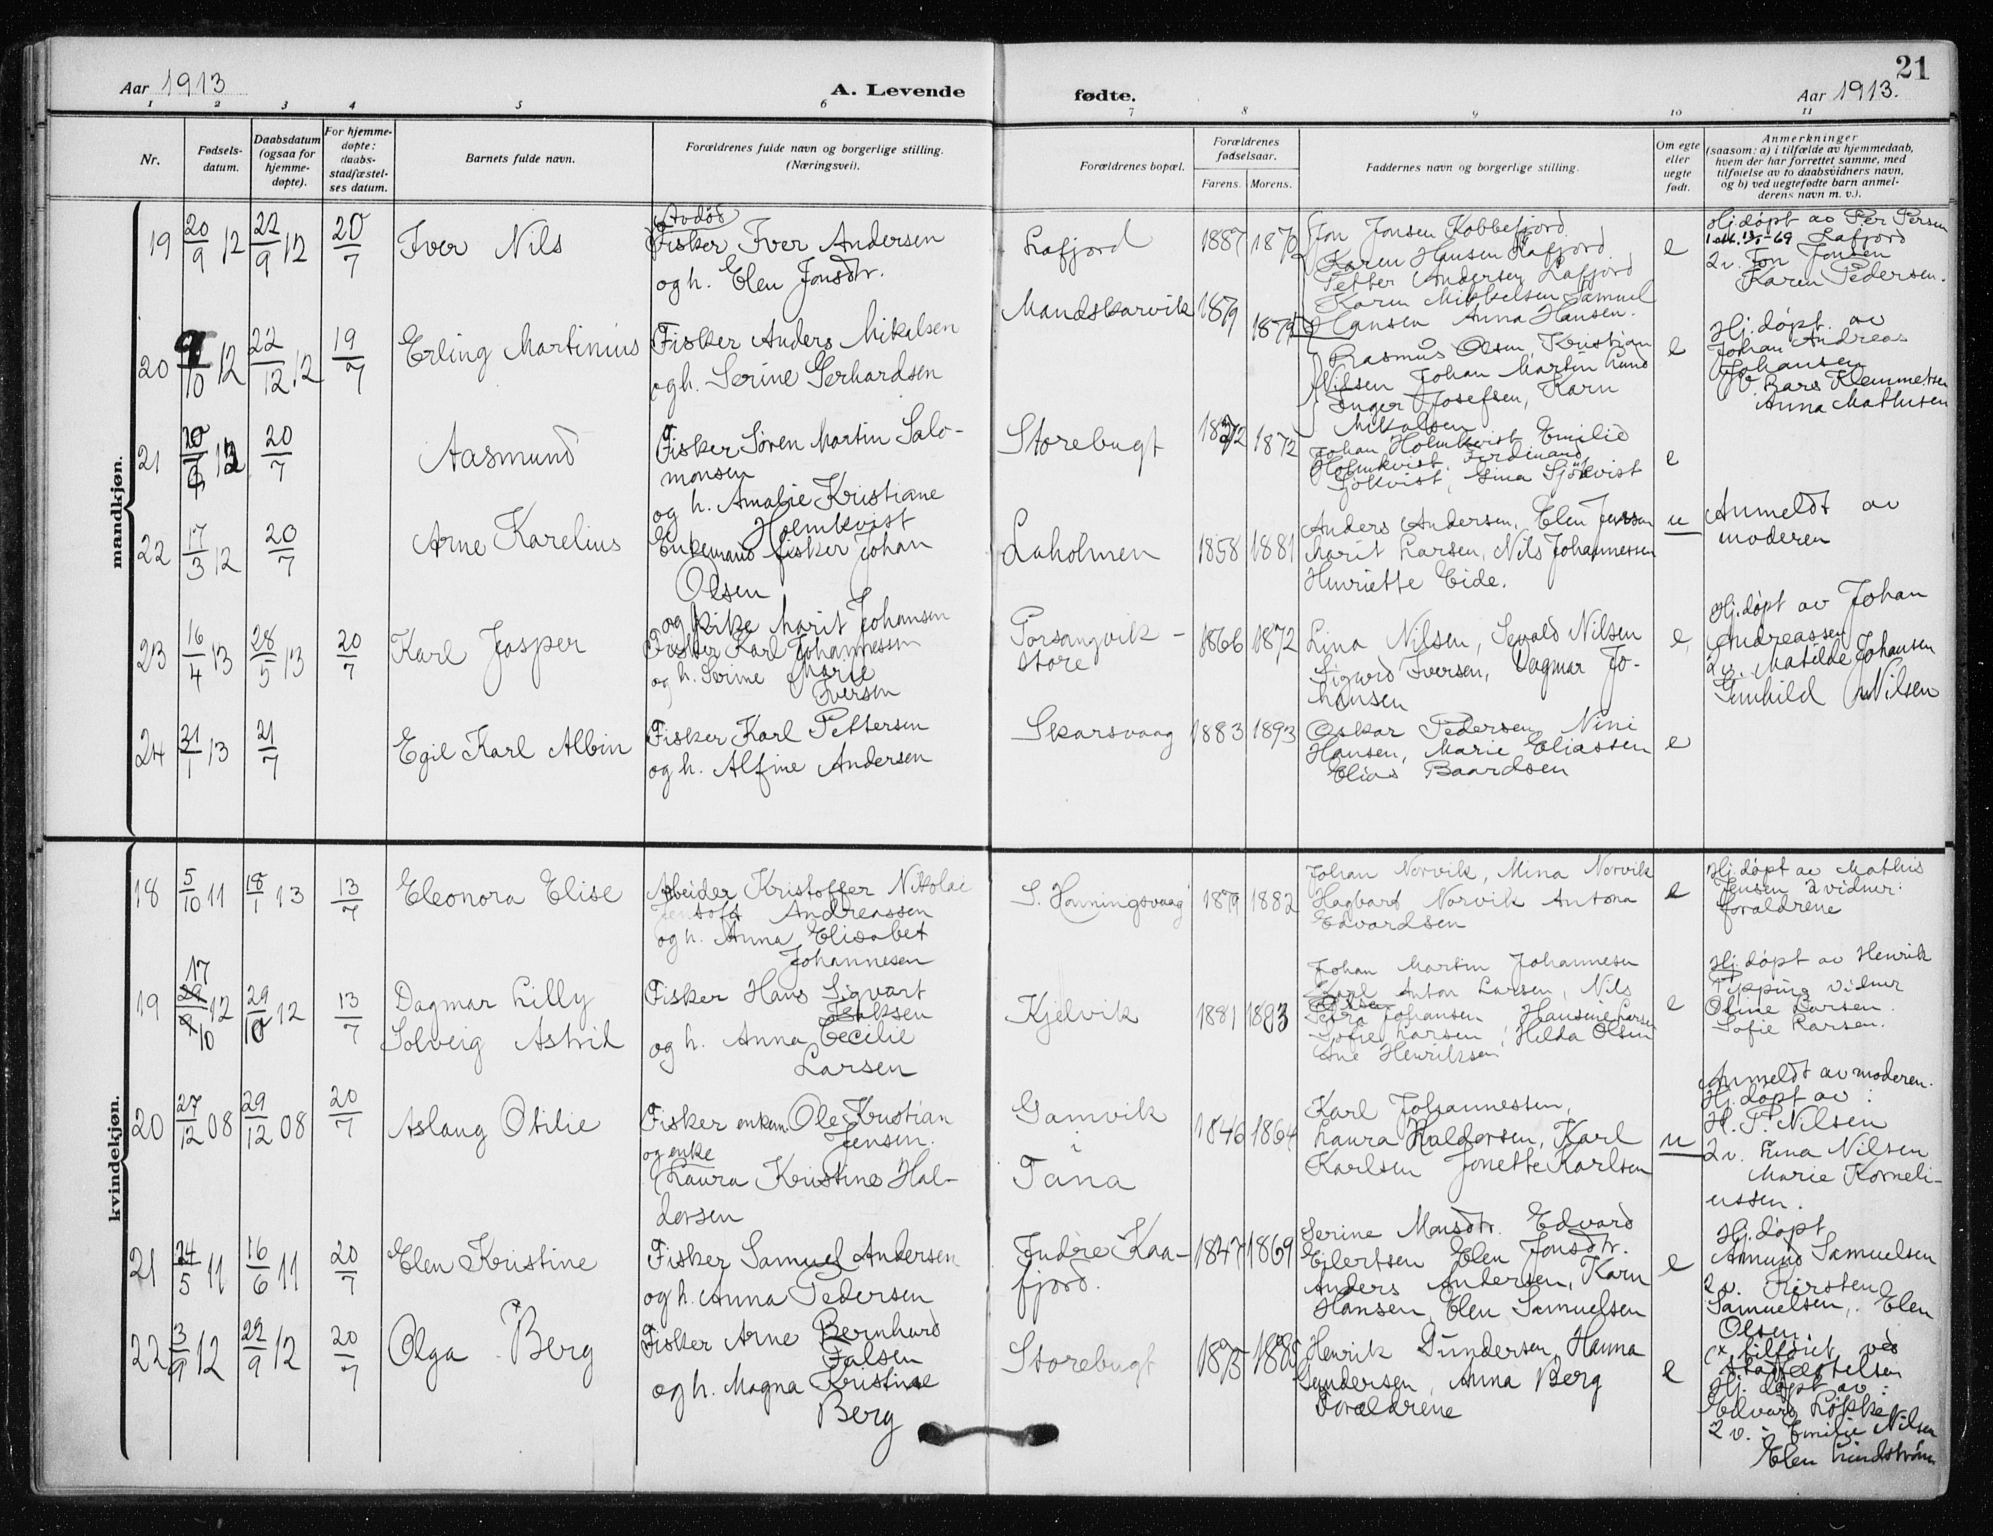 21
Aar 1913
A. Levende
fødte.
Aar 1913.
1 2 3 4 5 6 7 8 9 10 11
Nr.
Fødsels-
datum.
Daabsdatum
(ogsaa for
hjemme-
døpte).
For hjemme-
døpte:
daabs-
stadfæstel-
ses datum.
Barnets fulde navn.
Forældrenes fulde navn og borgerlige stilling.
(Næringsvei).
Forældrenes bopæl.
Forældrenes
fødselsaar.
Farens. Morens.
Faddernes navn og borgerlige stilling.
Om egte
eller
uegte
født.
Anmerkninger
(saasom: a) i tilfælde av hjemmedaab,
hvem der har forrettet samme, med
tilføielse av to daabsvidners navn,
og b) ved uegtefødte barn anmel-
derens navn m. v.).
mandkjøn.
19 20/9 12 22/9 12 20/7
Iver Nils
Avdød
Fisker Iver Andersen
og h. Elen Jonsdtr.
Lafjord
1887 1870
Jon Jonsen Kobbefjord.
Karen Hansen Kafjord.
Petter Andersen Lafjord
Karen Mikkelsen Samuel
Hansen Anna Hansen.
e
Hj. døpt av Per Persen
Lafjord
2 v. Jon Jonsen
Karen Pedersen.
20 9/10 12 22/12 12 19/7
Erling Martinius
Fisker Anders Mikelsen
og h. Serine Gerhardsen
Mandskarvik
1879 1879
Rasmus Olsen, Kristian
Nilsen Johan Martin Lund
Inger Josefsen, Karn
Mikalsen
e
Hj. døpt av
Johan Andreas
Johansen
Bars Klemmetsen
Anna Mathisen
21 20/7
Aasmund
Fisker Søren Martin Salo-
monsen
og h. Amalie Kristiane
Holmkvist
Storebugt
1872 1872
Johan Holmkvist Emilie
Holmkvist, Ferdinand
Sjökvist, Gina Sjökvist
e
22 17/3 12 20/7
Arne Karelius
Enkemand fisker Johan
Olsen
og pike Marit Johansen
Laholmen
1858 1881
Anders Andersen, Elen Jensen
Marit Larsen, Nils Johannessen
Henriette Eide.
u
Anmeldt av
moderen
23 16/4 13 28/5 13 20/7
Karl Jasper
Fisker Karl Johannessen
og h. Serine Marie
Iversen
Porsangvik -
store
1866 1872
Lina Nilsen, Sevald Nilsen
Sigurd Iversen, Dagmar Jo-
hansen
e
Hj. døpt av Johan
Andreassen
2 v. Matilde Johansen
Gunhild Nilsen
24 31/1 13 21/7
Egil Karl Albin
Fisker Karl Pettersen
og h. Alfine Andersen
Skarsvaag
1883 1893
Oskar Pedersen Nini
Hansen, Marie Eliassen
Elias Baardsen
e
kvindekjøn.
18 5/10 11 18/1 13 13/7
Eleonora Elise
Arbeider Kristoffer Nikolai
Jentoft Andreassen
og h. Anna Elisabet
Johannesen
S. Honningsvaag
1879 1882
Johan Norvik, Mina Norvik
Hagbart Norvik Antona
Edvardsen
e
Hj. døpt av Mathis
Jensen 2 vidner:
forældrene
19 17/10 12 29/10 12 13/7
Dagmar Lilly
Solveig Astrid
Fisker Hans Sigvart
Isaksen
og h. Anna Cecilie
Larsen
Kjelvik
1881 1893
Johan Martin Johannesen
Karl Anton Larsen, Nils
Olsen
Petra Johansen Hansine Larsen
Sofie Larsen, Hilda Olsen
Ane Henriksen
e
Hj. døpt av Henrik
Pipping Vidner
Oline Larsen.
Sofie Larsen.
20 27/12 08 29/12 08 20/7
Aslaug Otilie
Fisker enkem. Ole Kristian
Jensen.
og enke
Laura Kristine Hal-
dorsen
Gamvik
i
Tana
1846 1864
Karl Johannessen,
Laura Haldorsen, Karl
Karlsen Jonette Karlsen
u
Anmeldt av moderen.
Hj. døpt av:
H. P. Nilsen
2 v. Lina Nilsen
Marie Korneli-
ussen.
21 24/5 11 16/6 11 20/7
Elen Kristine
Fisker Samuel Andersen
og h. Anna Pedersen
Indre Kaa-
fjord.
1847 1869
Serine Monsdtr. Edvard
Eilertsen Elen Jonsdtr.
Anders Andersen, Karn
Hansen, Elen Samuelsen
e
Hj. døpt
Amund Samuelsen
2 v. Kirsten
Samuelsen, Elen
Olsen.
22 3/9 12 22/9 12 20/7
Olga x Berg
Fisker Arne Bernhard
Falsen
og h. Magna Kristine
Berg
Storebugt
1875 1885
Henrik Gundersen, Hanna
Gundersen, Anna Berg
Forældrene
e
(x tilføiet ved
stadfæstelsen
Hj. døpt av:
Edvard Løpke
2 v. - Emilie Nilsen
Elen Lindstrøm